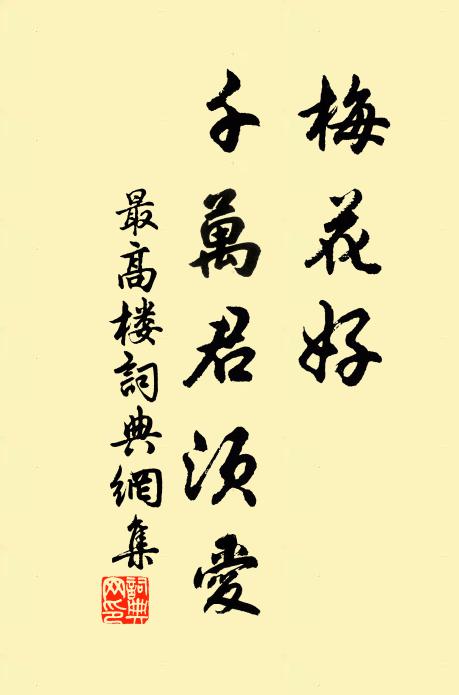 梅花好
千萬君須愛
最高楼詞典網集
詞典網印